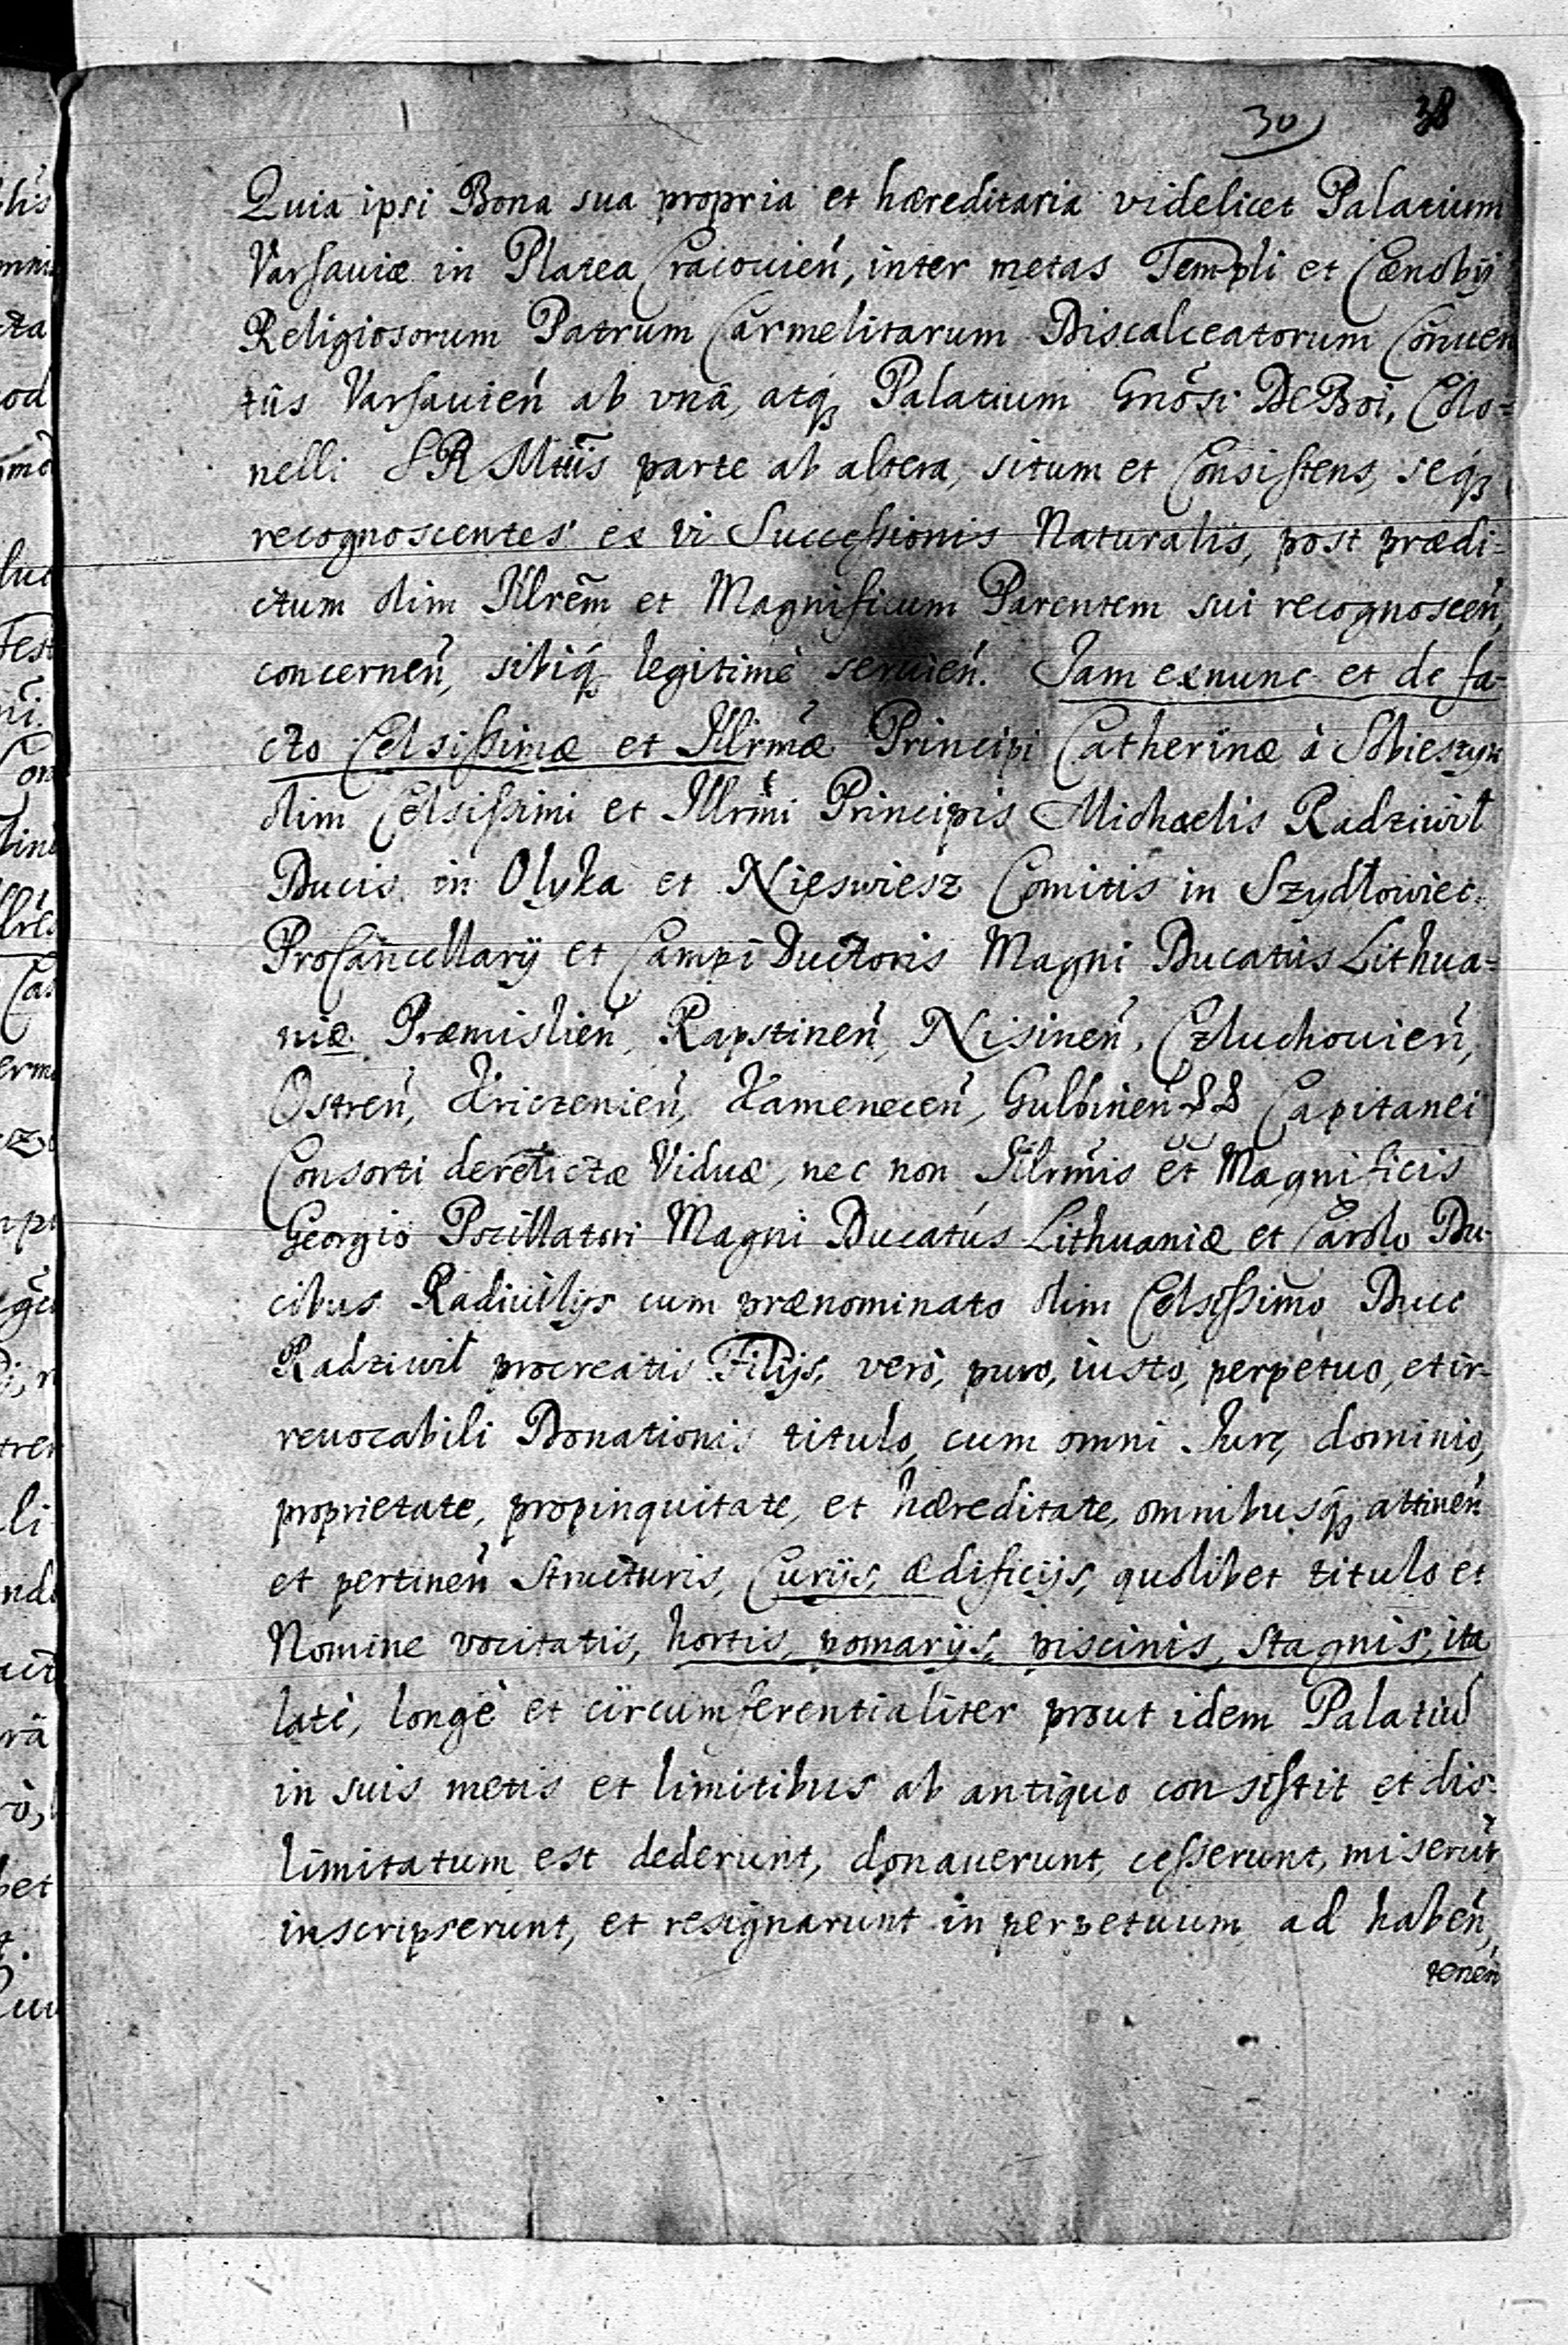 30 38
Quia ipsi Bona sua propria et hæreditaria videlicet Palatium
Varsauiæ in Platea Cracouień, inter metas Templi et Cænobij
Religiosorum Patrum Carmelitarum Discalceatorum Conuen
tûs Varsauień ab vnâ, atq, Palatium Gnōsi De Boi, Colo=
nelli SR Mttis parte ab altera, situm et Consistens, seq,
recognoscentes ex vi Successionis Naturalis, post prædi=
ctum olim Illrēm et Magnificum Parentem sui recognosceń,
concerneń, sibiq, legitimè seruień. Iam exnunc et de fa-
cto Celsissimæ et Illrmæ Principi Catherinæ à Sobieszyn
olim Celsissimi et Illrmi Principis Michaelis Radziwił
Ducis in Olyka et Nieswiesz Comitis in Szydłowiec.
ProCancellarij et Campi Ductoris Magni Ducatûs Lithua=
niæ Præmislień, Rapstineń, Nisineń, Człuchouień,
Ostreń, Kriczenień, Kameneceń, Gulbineń && Capitanei
Consorti derelictæ Viduæ, nec non Illrmis et Magnificis
Georgio Pocillatori Magni Ducatûs Lithuaniæ et Carolo Du-
cibus Radiuilijs cum prænominato olim Celsissimo Duce
Radziwił procreatis Filijs, verò, puro, iusto, perpetuo, et ir-
reuocabili Donationis titulo, cum omni Iure, dominio,
proprietate, propinquitate, et hæreditate, omnibusq, attineń
et pertineń structuris, Curijs, ædificijs, quolibet titulo et
Nomine vocitatis, hortis, pomarijs, piscinis, stagnis, ita
latè, longè et circumferentialiter prout idem Palatiū
in suis metis et limitibus ab antiquo consistit et dis-
limitatum est dederunt, donauerunt, cesserunt, miserūt
inscripserunt, et resignarunt in perpetuum ad habeń,
teneń